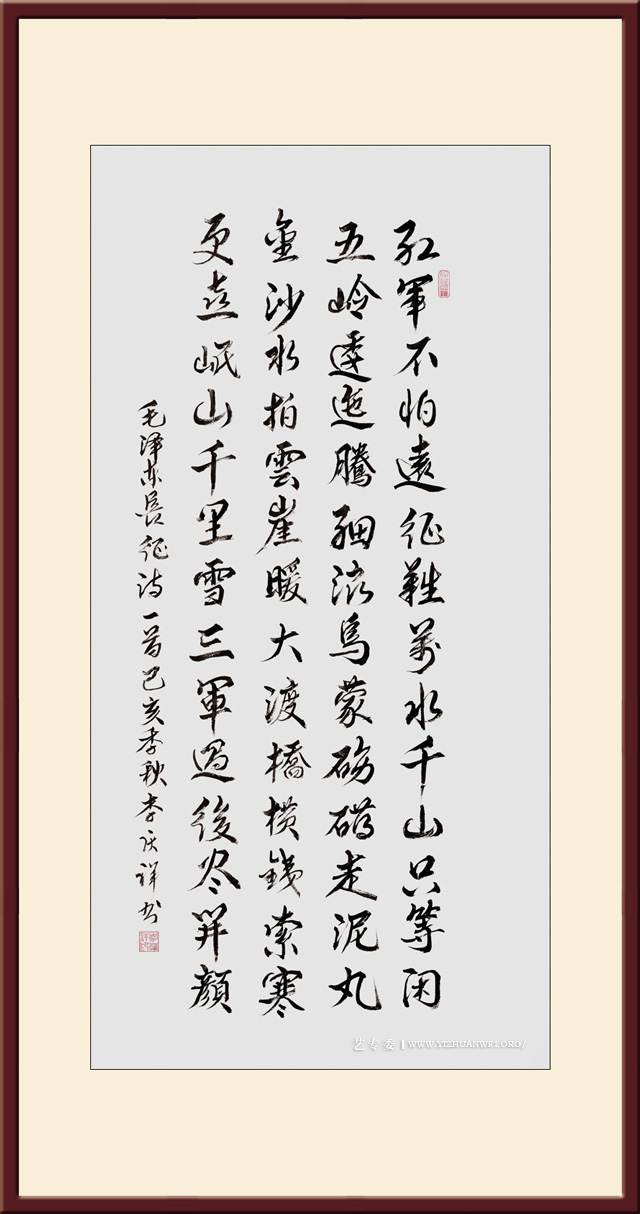 紅軍不怕遠征難萬水千山只等闲
五岭逶迤騰細浪烏蒙磅礴走泥丸
金沙水拍雲崖暖大渡橋横鐵索寒
更喜岷山千里雪三軍過後尽開顔
毛泽东長征诗一首己亥季秋李庆祥书
艺专委 | WWW.YIZHUANWEI.ORG/